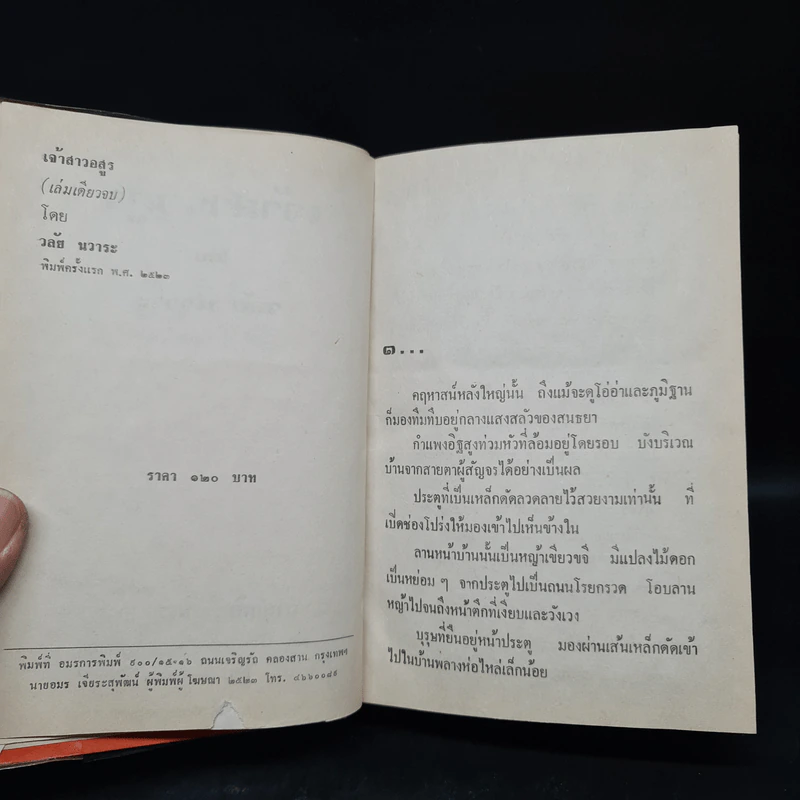 เจ้าสาวอสูร
(เล่มเดียวจบ)
โดย
วลัย นวาระ
พิมพ์ครั้งแรก พ.ศ. ๒๕๒๓
ราคา ๑๒๐ บาท
พิมพ์ที่ อมรการพิมพ์ ๙๐๐/๑๕-๑๖ ถนนเจริญรัถ คลองสาน กรุงเทพฯ
นายอมร เจียระสุพัฒน์ ผู้พิมพ์ผู้โฆษณา ๒๕๒๓ โทร. ๔๖๖๐๐๘๙
๑...
คฤหาสน์หลังใหญ่นั้น ถึงแม้จะดูโอ่อ่าและภูมิฐาน
ก็มองทึมทึบอยู่กลางแสงสลัวของสนธยา
กำแพงอิฐสูงท่วมหัวที่ล้อมอยู่โดยรอบ บังบริเวณ
บ้านจากสายตาผู้สัญจรได้อย่างเป็นผล
ประตูที่เป็นเหล็กดัดลวดลายไว้สวยงามเท่านั้น ที่
เปิดช่องโปร่งให้มองเข้าไปเห็นข้างใน
ลานหน้าบ้านนั้นเป็นหญ้าเขียวขจี มีแปลงไม้ดอก
เป็นหย่อม ๆ จากประตูไปเป็นถนนโรยกรวด โอบลาน
หญ้าไปจนถึงหน้าตึกที่เงียบและวังเวง
บุรุษที่ยืนอยู่หน้าประตู มองผ่านเส้นเหล็กดัดเข้า
ไปในบ้านพลางห่อไหล่เล็กน้อย